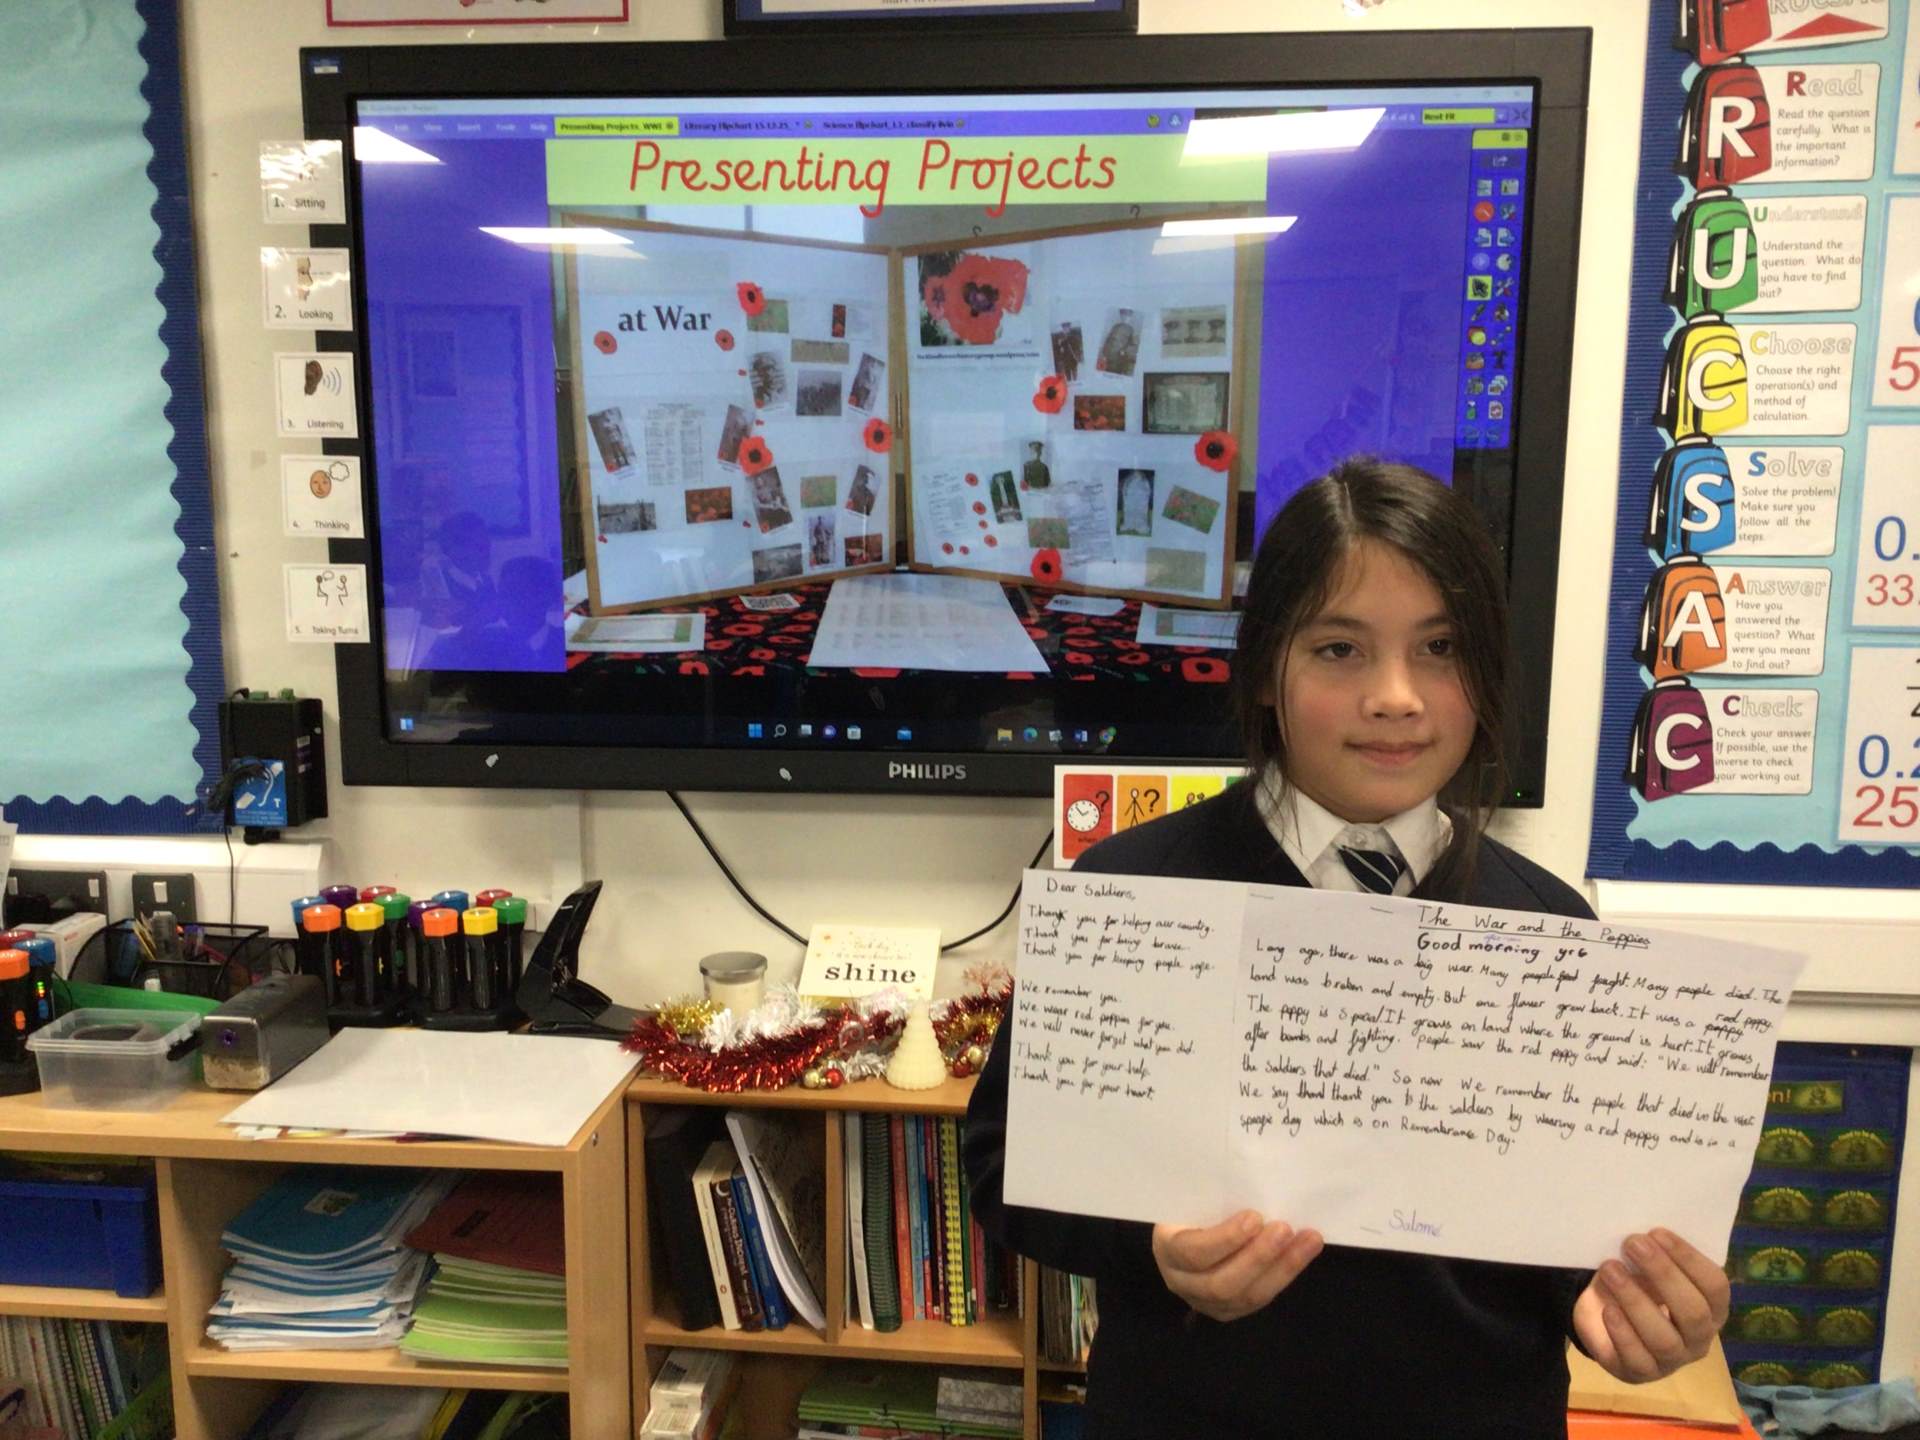 Presenting Projects_WW1
Literacy flipchart 15.12.25_
Science flipchart_L3_classify livin
Edit View Insert Tools Help
Best Fit
Presenting Projects
at War
PHILIPS
1. Sitting
2. Looking
3. Listening
4. Thinking
5. Taking Turns
shine
when
Dear Soldiers,
Thank you for helping our country.
Thank you for being brave.
Thank you for keeping people safe.
We remember you.
We wear red poppies for you.
We will never forget what you did.
Thank you for your help.
Thank you for your heart.
The War and the Poppies
Good morning yr6
Long ago, there was a big war. Many people fought. Many people died. The
land was broken and empty. But one flower grew back. It was a red poppy.
The poppy is special. It grows on land where the ground is hurt. It grows
after bombs and fighting. People saw the red poppy and said: "We will remember
the Soldiers that died." So now we remember the people that died in the war.
We say thank you to the soldiers by wearing a red poppy and is in a
day which is on Remembrance Day.
Salomé
RUCSAC
R
Read
Read the question
carefully. What is
the important
information?
U
Understand
Understand the
question. What do
you have to find
out?
C
Choose
Choose the right
operation(s) and
method of
calculation.
S
Solve
Solve the problem!
Make sure you
follow all the
steps.
A
Answer
Have you
answered the
question? What
were you meant
to find out?
C
Check
Check your answer.
If possible, use the
inverse to check
your working out.
5
0.
33.
0.2
25